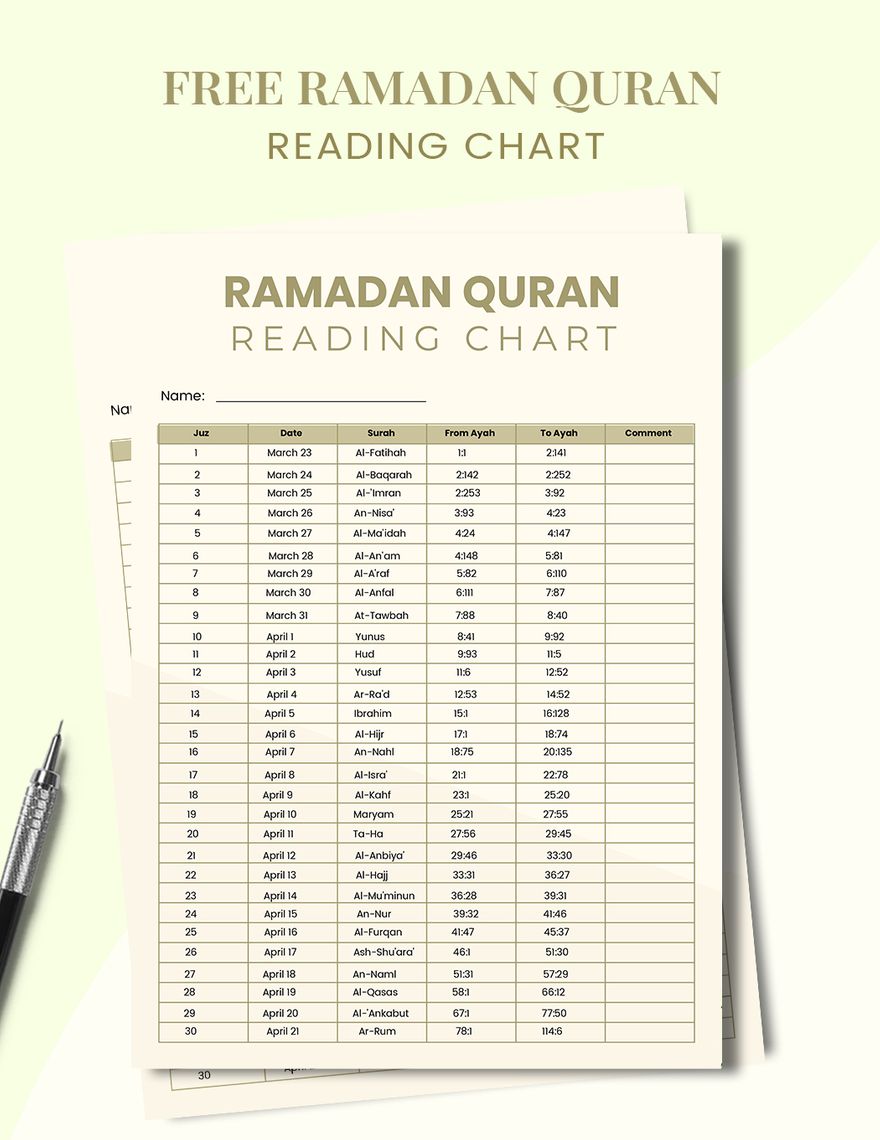 FREE RAMADAN QURAN
READING CHART
RAMADAN QURAN
READING CHART
Name:
Juz Date Surah From Ayah To Ayah Comment
1 March 23 Al-Fatihah 1:1 2:141
2 March 24 Al-Baqarah 2:142 2:252
3 March 25 Al-'Imran 2:253 3:92
4 March 26 An-Nisa' 3:93 4:23
5 March 27 Al-Ma'idah 4:24 4:147
6 March 28 Al-An'am 4:148 5:81
7 March 29 Al-A'raf 5:82 6:110
8 March 30 Al-Anfal 6:111 7:87
9 March 31 At-Tawbah 7:88 8:40
10 April 1 Yunus 8:41 9:92
11 April 2 Hud 9:93 11:5
12 April 3 Yusuf 11:6 12:52
13 April 4 Ar-Ra'd 12:53 14:52
14 April 5 Ibrahim 15:1 16:128
15 April 6 Al-Hijr 17:1 18:74
16 April 7 An-Nahl 18:75 20:135
17 April 8 Al-Isra' 21:1 22:78
18 April 9 Al-Kahf 23:1 25:20
19 April 10 Maryam 25:21 27:55
20 April 11 Ta-Ha 27:56 29:45
21 April 12 Al-Anbiya' 29:46 33:30
22 April 13 Al-Hajj 33:31 36:27
23 April 14 Al-Mu'minun 36:28 39:31
24 April 15 An-Nur 39:32 41:46
25 April 16 Al-Furqan 41:47 45:37
26 April 17 Ash-Shu'ara' 46:1 51:30
27 April 18 An-Naml 51:31 57:29
28 April 19 Al-Qasas 58:1 66:12
29 April 20 Al-'Ankabut 67:1 77:50
30 April 21 Ar-Rum 78:1 114:6
30